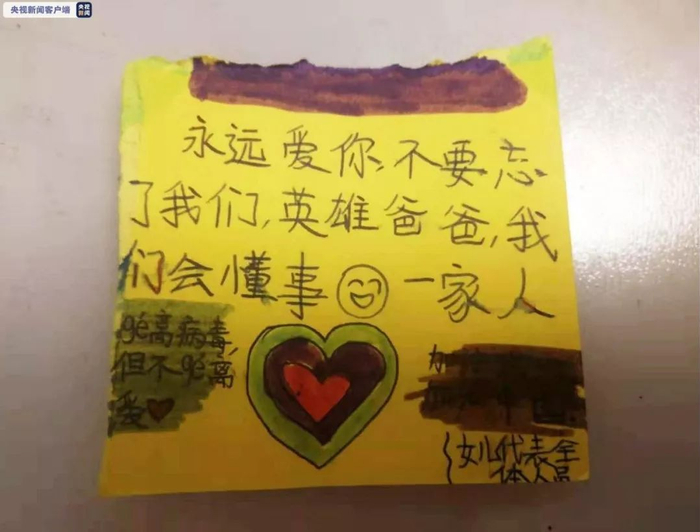 央视新闻客户端
央视
新闻
永远爱你,不要忘
了我们,英雄爸爸,我
们会懂事 一家人
gé离病毒,
但不gé离
爱
加
女儿代表全
体人员